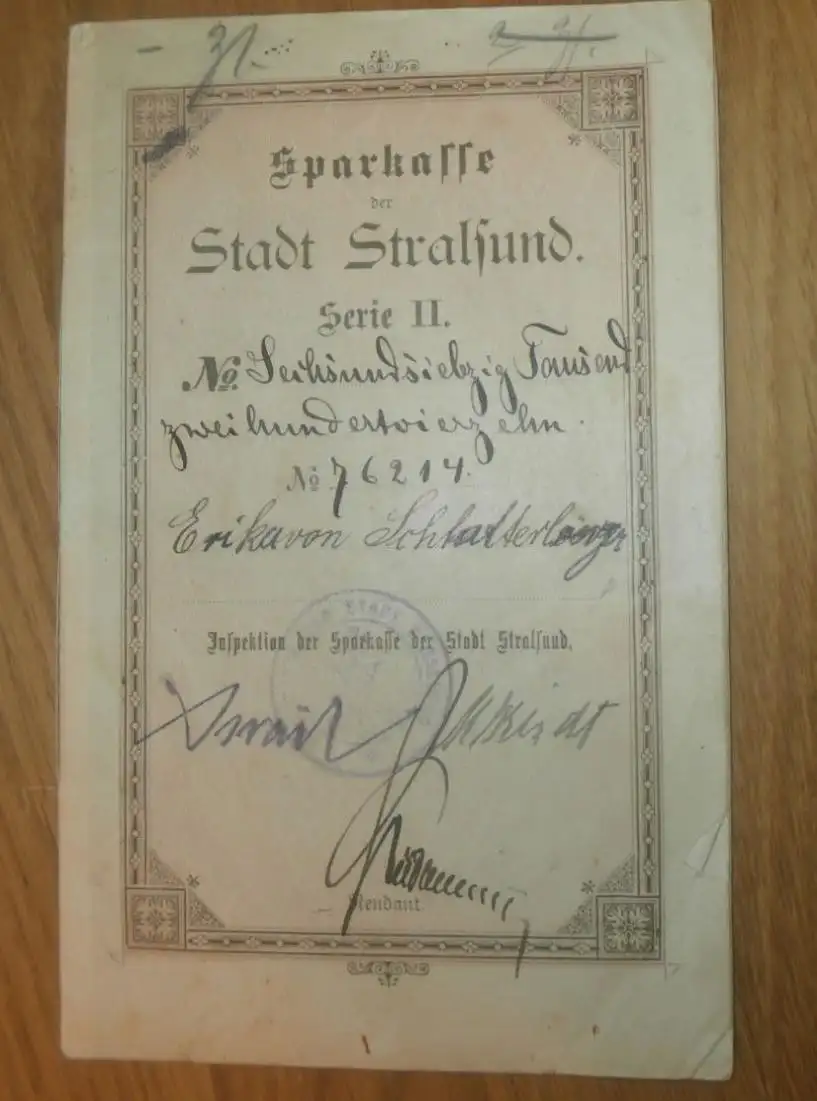 — 31.
31.
Sparkasse
der
Stadt Stralsund.
Serie II.
No. Sechsundsiebzig Tausend
zweihundertvierzehn.
No 76214.
Erika von
Inspektion der Sparkasse der Stadt Stralsund.
Rendant